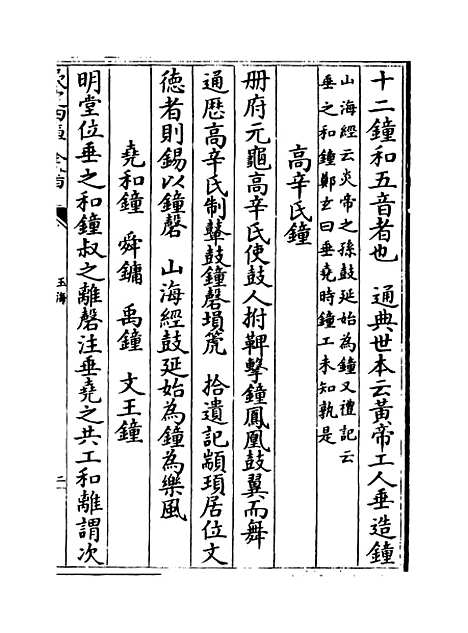 十二鐘和五音者也　通典世本云黃帝工人垂造鐘
山海經云炎帝之孫鼓延始為鐘又禮記云
垂之和鐘鄭玄曰垂堯時鐘工未知孰是
高辛氏鐘
册府元龜高辛氏使鼓人拊鞞擊鐘鳳凰鼓翼而舞
通歴高辛氏制鼙鼓鐘磬塤箎　拾遺記顓頊居位文
徳者則錫以鐘磬　山海經鼓延始為鐘為樂風
堯和鐘　舜鏞　禹鐘　文王鐘
明堂位垂之和鐘叔之離磬注垂堯之共工和離謂次
玉海
二